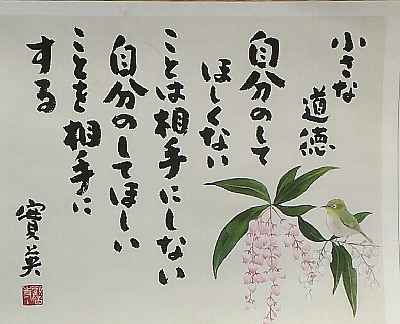 小さな
道徳
自分のして
ほしくない
ことは相手にしない
自分のしてほしい
ことを相手に
する
寳英